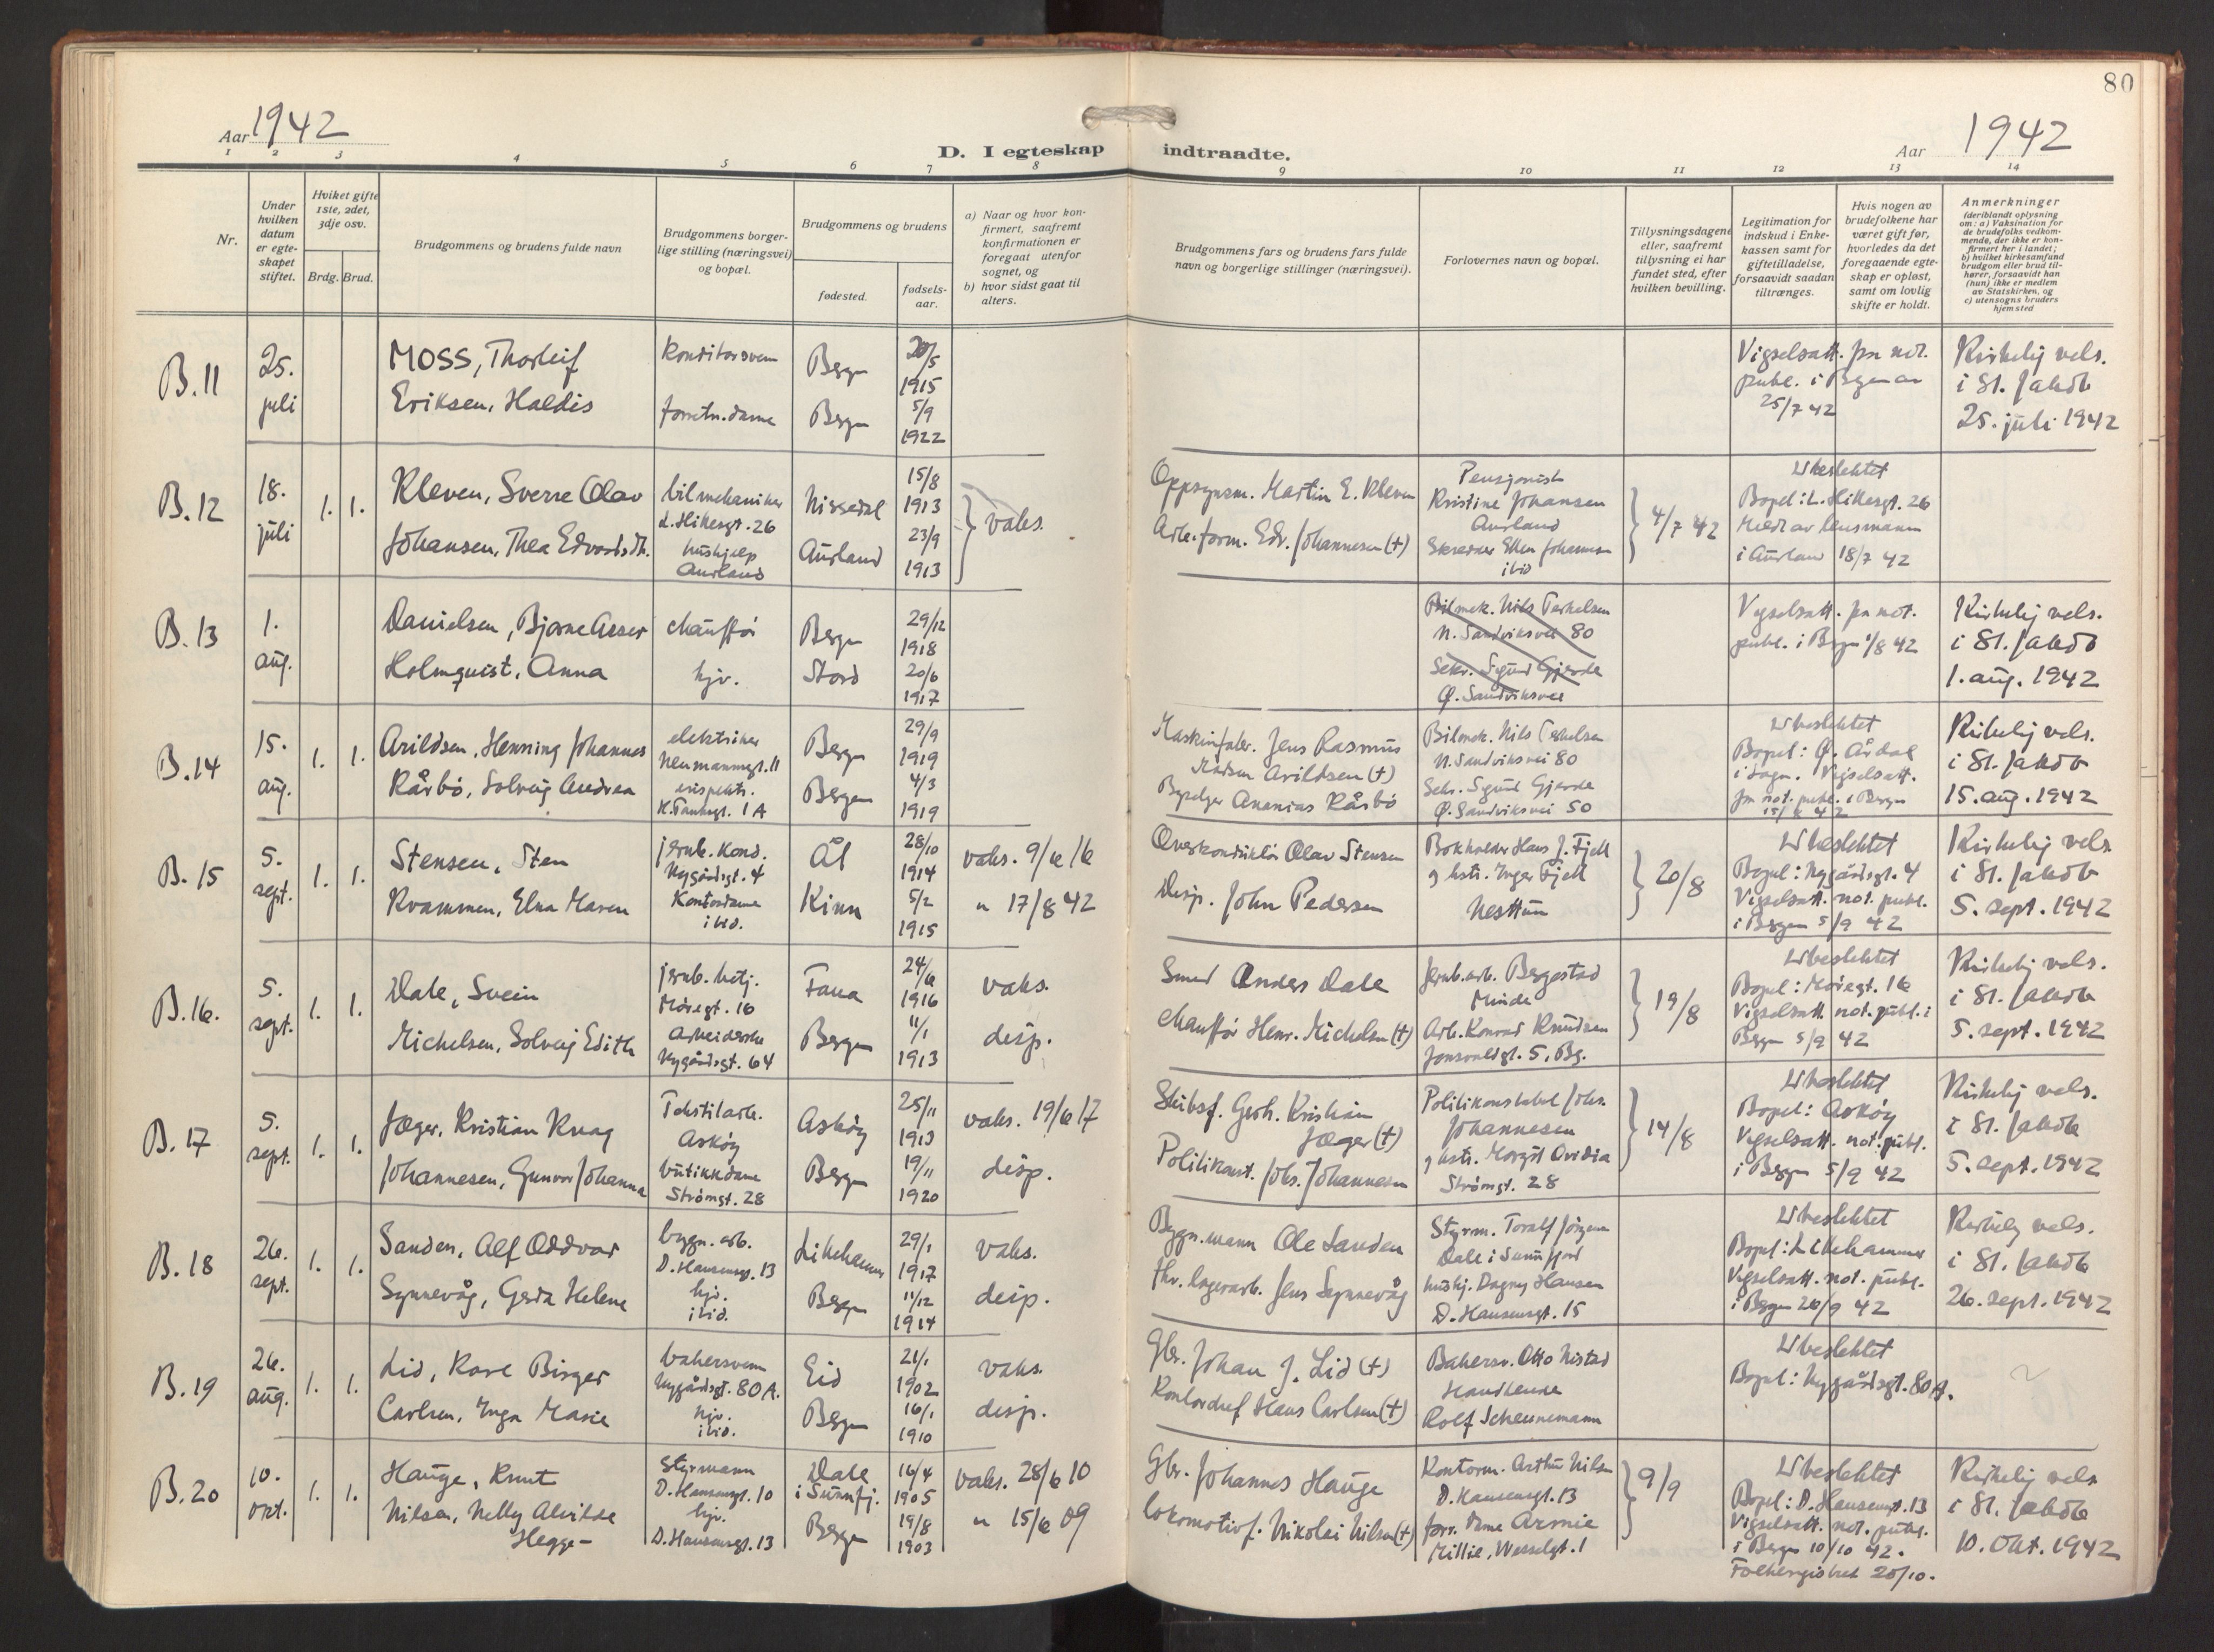 80
Aar 1942
D. I egteskap indtraadte.
Aar 1942
1 2 3 4 5 6 7 8 9 10 11 12 13 14
Nr.
Under hvilken datum er egteskapet stiftet.
Hvilket gifte 1ste, 2det, 3dje osv.
Brdg. Brud.
Brudgommens og brudens fulde navn
Brudgommens borgerlige stilling (næringsvei) og bopæl.
Brudgommens og brudens
fødested.
fødselsaar.
a) Naar og hvor konfirmert, saafremt konfirmationen er foregaat utenfor sognet, og
b) hvor sidst gaat til alters.
Brudgommens fars og brudens fars fulde navn og borgerlige stillinger (næringsvei).
Forlovernes navn og bopæl.
Tillysningsdagene eller, saafremt tillysning ei har fundet sted, efter hvilken bevilling.
Legitimation for indskud i Enkekassen samt for giftetilladelse, forsaavidt saadan tiltrænges.
Hvis nogen av brudefolkene har været gift før, hvorledes da det foregaaende egteskap er opløst, samt om lovlig skifte er holdt.
Anmerkninger
(deriblandt oplysning om: a) Vaksination for de brudefolks vedkommende, der ikke er konfirmert her i landet; b) hvilket kirkesamfund brudgom eller brud tilhører, forsaavidt han (hun) ikke er medlem av Statskirken, og c) utensogns bruders hjemsted
B.11
25. juli
MOSS, Thorleif
Eriksen, Haldis
Konditorsvenn
forretn.dame
Bergen
Bergen
20/5 1915
5/9 1922
Vigselsatt. fra not.
publ. i Bergen av
25/7 42
Kirkelig vels.
i St. Jakob
25. juli 1942
B.12
18. juli
1. 1.
Kleven, Sverre Olav
Johansen, Thea Edvardsdt.
bilmekaniker
L. Hillesgt. 26
hushjelp
Aurland
Nissedal
Aurland
15/8 1913
23/9 1913
vaks.
Oppsynsm. Martin E. Kleven
Arb.form. Edv. Johannesen (+)
Pensjonist
Kristine Johansen
Aurland
Ellen Johannsen
ibid
4/7 42
Ubeslektet
Bopel: L. Hillesgt. 26
Meld. av lensmann
i Aurland 18/7 42
B.13
1. aug.
Danielsen, Bjarne Asser
Holmquist, Anna
chauffør
hjv.
Bergen
Stord
29/12 1918
20/6 1917
Bilmek. Nils Terkelsen
N. Sandviksvei 80
Sekr. Sigurd Gjerde
Ø. Sandviksvei
Vigselsatt. fra not.
publ. i Bergen 1/8 42
Kirkelig vels.
i St. Jakob
1. aug. 1942
B.14
15. aug.
1. 1.
Arildsen, Henning Johannes
Rårbø, Solveig Andrea
elektriker
Neumannsgt. 11
K. Tanksgt. 1 A
Bergen
Bergen
29/9 1919
4/3 1919
Maskinfabr. Jens Rasmus
Madsen Arildsen (+)
Ananias Rårbø
Bilmek. Nils Terkelsen
N. Sandviksvei 80
Sekr. Sigurd Gjerde
Ø. Sandviksvei 50
Ubeslektet
Bopel: Ø. Årdal
i Sogn. Vigselsatt.
fra not. publ. i Bergen
15/8 42
Kirkelig vels.
i St. Jakob
15. aug. 1942
B.15
5. sept.
1. 1.
Stensen, Sten
Kvammen, Elna Maren
jernb. kond.
Nygårdsgt. 4
Kontordame
ibid.
Ål
Kinn
28/10 1914
5/2 1915
vaks. 9/6 16
" 17/8 42
Overkonduktør Olav Stensen
Disp. John Pedersen
Bokholder Hans J. Fjell
og hstr. Inger Fjell
Nesttun
20/8
Ubeslektet
Bopel: Nygårdsgt. 4
Vigselsatt. not. publ.
i Bergen 5/9 42
Kirkelig vels
i St. Jakob
5. sept. 1942
B.16.
5. sept.
1. 1.
Dale, Svein
Michelsen, Solveig Edith
jernb. betj.
Møregt. 16
Arbeiderske
Nygårdsgt. 64
Fana
Bergen
24/6 1916
11/1 1913
vaks.
disp.
Smed Anders Dale
Chauffør Henr. Michelsen (+)
Jernb.arb. Bergestad
Minde
Arb. Konrad Knudsen
Jonsvollsgt. 5, Bg.
19/8
Ubeslektet
Bopel: Møregt. 16
Vigselsatt. not. publ. i
Bergen 5/9 42
Kirkelig vels.
i St. Jakob
5. sept. 1942
B.17
5. sept.
1. 1.
Jæger, Kristian Knag
Johannesen, Gunvor Johanna
Tekstilarb.
Askøy
butikkdame
Strømgt. 28
Askøy
Bergen
25/11 1913
19/11 1920
vaks. 19/6 17
disp.
Skibsf. Gerh. Kristian
Jæger (+)
Politikonst. Johs. Johannesen
Politikonstabel Johs.
Johannesen
og hstr. Margit Ovidia
Strømgt. 28
14/8
Ubeslektet
Bopel: Askøy
Vigselsatt. not. publ.
i Bergen 5/9 42
Kirkelig vels.
i St. Jakob
5. sept. 1942
B.18
26. sept.
1. 1.
Sanden, Alf Oddvar
Synnevåg, Gerda Helene
bygn. arb.
D. Hansensgt. 13
hjv.
ibid.
Lillehammer
Bergen
29/1 1917
11/12 1914
vaks.
disp.
Bygn.mann Ole Sanden
fhv. lagerarb. Jens Synnevåg
Styrm. Toralf Jørgen
Dale i Sunnfjord
hushj. Dagny Hansen
D. Hansensgt. 15
Ubeslektet
Bopel: Lillehammer
Vigselsatt. not. publ.
i Bergen 26/9 42
Kirkelig vels.
i St. Jakob
26. sept. 1942
B.19
26. aug.
1. 1.
Lid, Kare Birger
Carlsen, Inga Marie
bakersvenn
Nygårdsgt. 80 A.
hjv.
ibid.
Eid
Bergen
21/1 1902
16/1 1910
vaks.
disp.
Gbr. Johan J. Lid (+)
Kontorchef Hans Carlsen (+)
Bakersv. Otto Nistad
Handlende
Rolf Scheunemann
Ubeslektet
Bopel: Nygårdsgt. 80 A.
B.20
10. okt.
1. 1.
Hauge, Knut
Nilsen, Nelly Alvilde
Hegge-
Styrmann
D. Hansensgt. 10
hjv.
D. Hansensgt. 13
Dale
i Sunnfj.
Bergen
16/4 1905
19/8 1903
vaks. 28/6 10
" 15/6 09
Gbr. Johannes Hauge
Lokomotivf. Nikolai Nilsen (+)
Kontorm. Arthur Nilsen
D. Hansensgt. 13
Millie, Wesselgt. 1
9/9
Ubeslektet
Bopel: D. Hansensgt. 13
Vigselsatt. not. publ.
i Bergen 10/10 42.
Folkeregistret 20/10.
Kirkelig vels
i St. Jakob
10. okt. 1942